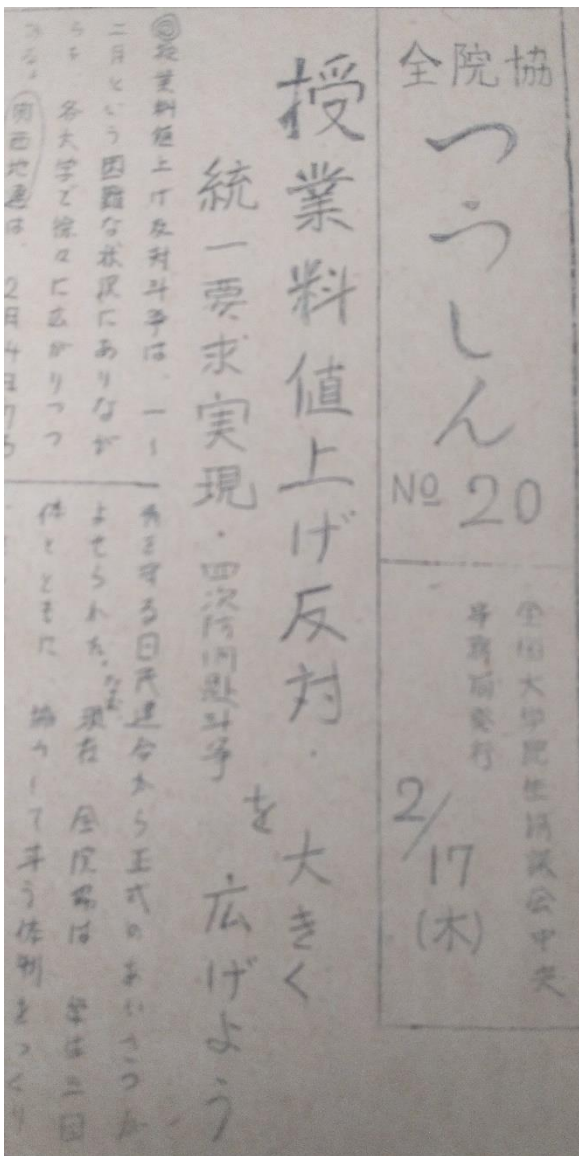 全院協
つうしん
No 20
全国大学院生協議会中央
事務局発行
2/17
(木)
授業料値上げ反対・
統一要求実現・四次防問題斗争
を
大きく
広げよう
◎授業料値上げ反対斗争は、一〜
二月という困難な状況にありなが
らも 各大学で徐々に広がりつつ
ある。関西地連は 2月4日
を守る国民連合から正式のあいさつが
よせられた。なお 現在 全院協は 学は三回
体とともに 協力して斗う体制をつくり